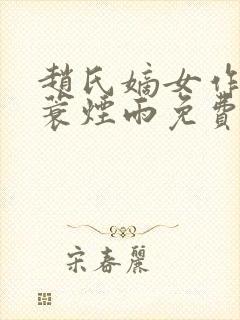 趙氏嫡女作
蓑煙雨免費
宋春麗